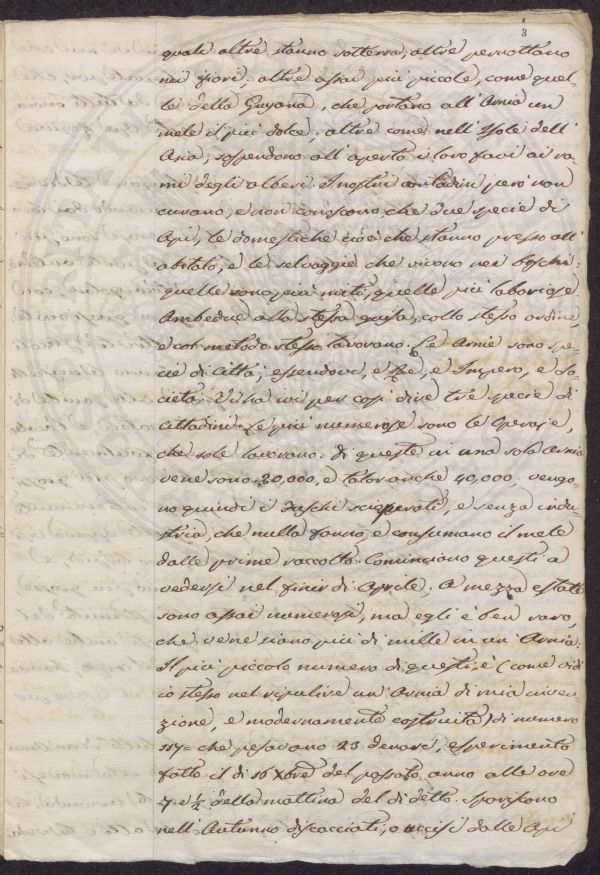 3
quali altre stanno sotterra, altre pernottano
nei fiori; altre assai più piccole, come quel-
le della Guyana, che portano all'Arnia un
mele il più dolce; altre come nell'Isole dell'
Asia, sospendono all'aperto i loro favi ai ra-
mi degli alberi. I nostri contadini però non
curano, e non conoscono, che due specie di
Api, le domestiche cioè che stanno presso all'
abitato, e le selvaggie che vivono nei boschi:
quelle sono più miti, quelle più laboriose
Ambedue alla stessa guisa, collo stesso ordine,
e col metodo stesso lavorano. Le Arnie sono spe-
cie di Città, essendovi, e Re, e Impero, e So-
cietà. Vi ha ivi per così dire tre specie di
Cittadini. Le più numerose sono le Operaje,
che sole lavorano. Di queste in una sola Arnia
vene sono 20,000, e talor anche 40,000. vengo-
no quindi i Faschi scioperati, e senza indu-
stria, che nulla fanno, e consumano il mele
dalle prime raccolto. Cominciano questi a
vedersi nel finir di Aprile. A mezza estate
sono assai numerosi, ma egli è ben raro,
che vene siano più di mille in un'Arnia.
Il più piccolo numero di questi, è (come vidi
io stesso nel ripulire un'Arnia di mia inven-
zione, e modernamente costruita) di numero
117= che pesavano 23 denari, esperimento
fatto il dì 16 Xbre del passato anno alle ore
7 e ½ della mattina del dì detto. Spariscono
nell'Autunno discacciati, o uccisi dalle Api